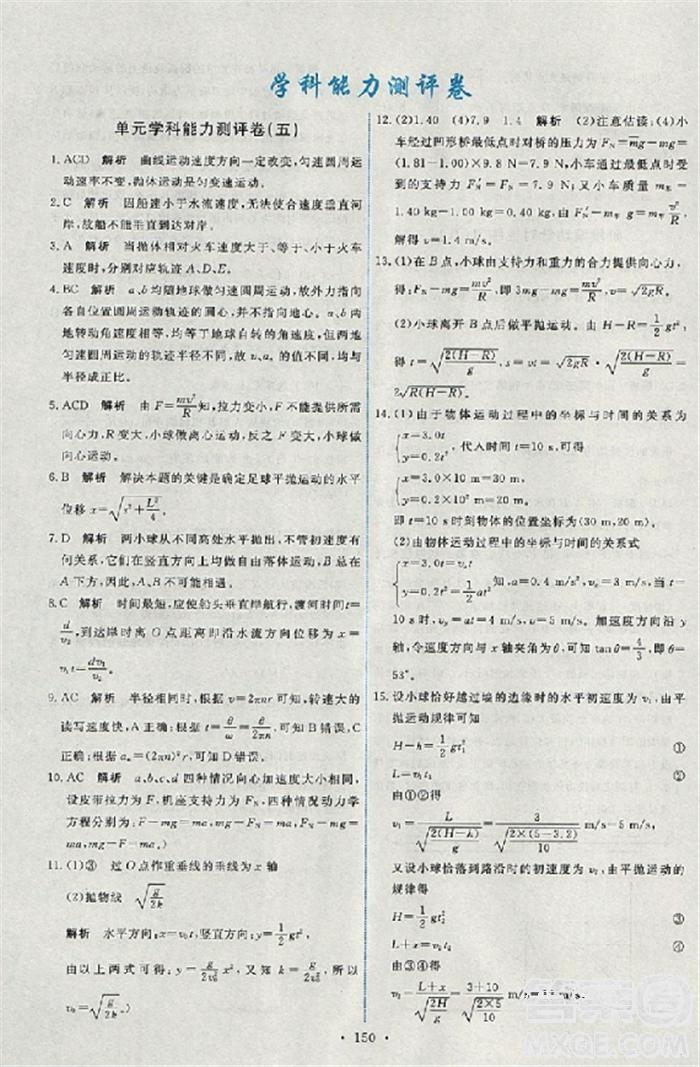 学科能力测评卷
单元学科能力测评卷(五)
1. ACD 解析 曲线运动速度方向一定改变,匀速圆周运
动速率不变,抛体运动是匀变速运动。
2. C 解析 因船速小于水流速度,无法使合速度垂直河
岸,故船不能垂直到达对岸。
3. A 解析 当抛体相对火车速度大于、等于、小于火车
速度时,分别对应轨迹A、B、C。
4. BC 解析 a、b均随地球做匀速圆周运动,故外力指向
各自位置圆周运动轨迹的圆心,并不指向地心。a、b两
地转动角速度均等于地球自转的角速度,但两地
匀速圆周运动的轨迹半径不相同,因此线速度与轨迹
半径成正比。
5. ACD 解析 由F=mv²/R知,拉力变小,F不能提供所需
向心力,R变大、小球做离心运动;反之,F变大,小球做
向心运动。
6. B 解析 解决本题的关键是确定足球平抛运动的水平
位移x=√(s²+L²/4)。
7. D 解析 两小球从不同高处水平抛出,不管初速度有
何关系,它们在竖直方向上做自由落体运动,B总在
A下方,因此不可能相遇。
8. C 解析 时间最短,应使船头垂直岸航行,渡河时间t=
d/v₂,到达对岸时离O点距离即沿水流方向位移为x=
v₁t=dv₁/v₂。
9. AC 解析 半径相同时,根据v=2πnr可知,转速大的
读写速度快,A正确;根据t=θ/ω=θ/(2πn)可知,B错误,C
正确;根据aₙ=(2πn)²r可知,D错误。
10. AC 解析 a、b、c、d四种情况向心加速度大小相同,
设皮带拉力为F,机座支持力为Fₙ,四种情况动力学
方程分别为F-mg=ma,mg-Fₙ=ma,Fₙ=ma,Fₙ
-mg=ma,故A、C正确。
11. (1)③ 过O点作重垂线的垂线为x轴
(2)抛物线 √(g/2k)
解析 水平方向:x=v₀t,竖直方向:y=½gt²
由以上两式可得:y=g/(2v₀²)x²,又知k=g/(2v₀²),所以v₀
=√(g/2k)。
12. (2)1.40 (4)7.9 1.4 解析 (2)注意估读;(4)
小车经过凹形桥最低点时对桥的压力为Fₙ=m̄g-mg=
(1.81-1.00)×9.8 N=7.9 N,小车通过最低点时受
到的支持力Fₙ′=Fₙ=7.9 N,小车质量m车=
1.40 kg-1.00 kg=0.40 kg,由Fₙ′-m车g=m车v²/R,
解得v=1.4 m/s。
13. (1)在B点,小球由支持力和重力的合力提供向心力,
得:Fₙ-mg=mv²/R,即3mg-mg=mv²/R,v=√(2gR)。
(2)小球离开B点后做平抛运动:H-R=½gt²
得t=√(2(H-R)/g),x=vt=√(2gR)·√(2(H-R)/g)=
2√(R(H-R))。
14. (1)由于物体运动过程中的坐标与时间的关系为
{x=3.0t,
y=0.2t²,代入时间t=10 s,可得
{x=3.0×10 m=30 m,
y=0.2×10² m=20 m。
即t=10 s时刻物体的位置坐标为(30 m,20 m)。
(2)由物体运动过程中的坐标与时间的关系式
{x=3.0t=vₓt
y=0.2t²=½at²
得:vₓ=3.0 m/s;a=0.4 m/s²。
t=10 s时,v_y=at=4 m/s。加速度方向沿y
轴,令速度方向与x轴夹角为θ,可知tanθ=4/3,即θ=
53°。
15. 设小球恰好越过墙的边缘时的水平初速度为v₁,由平
抛运动规律可知
H-h=½gt₁² ①
L=v₁t₁ ②
由①②得
v₁=L/√(2(H-h)/g)=3/√(2×(5-3.2)/10) m/s=5 m/s
又设小球恰落到路沿时的初速度为v₂,由平抛运动的
规律得
H=½gt₂² ③
L+x=v₂t₂ ④
由③④得
v₂=(L+x)/√(2H/g)=(3+10)/√(2×5/10) m/s=
150
答案圈
MXQE.COM